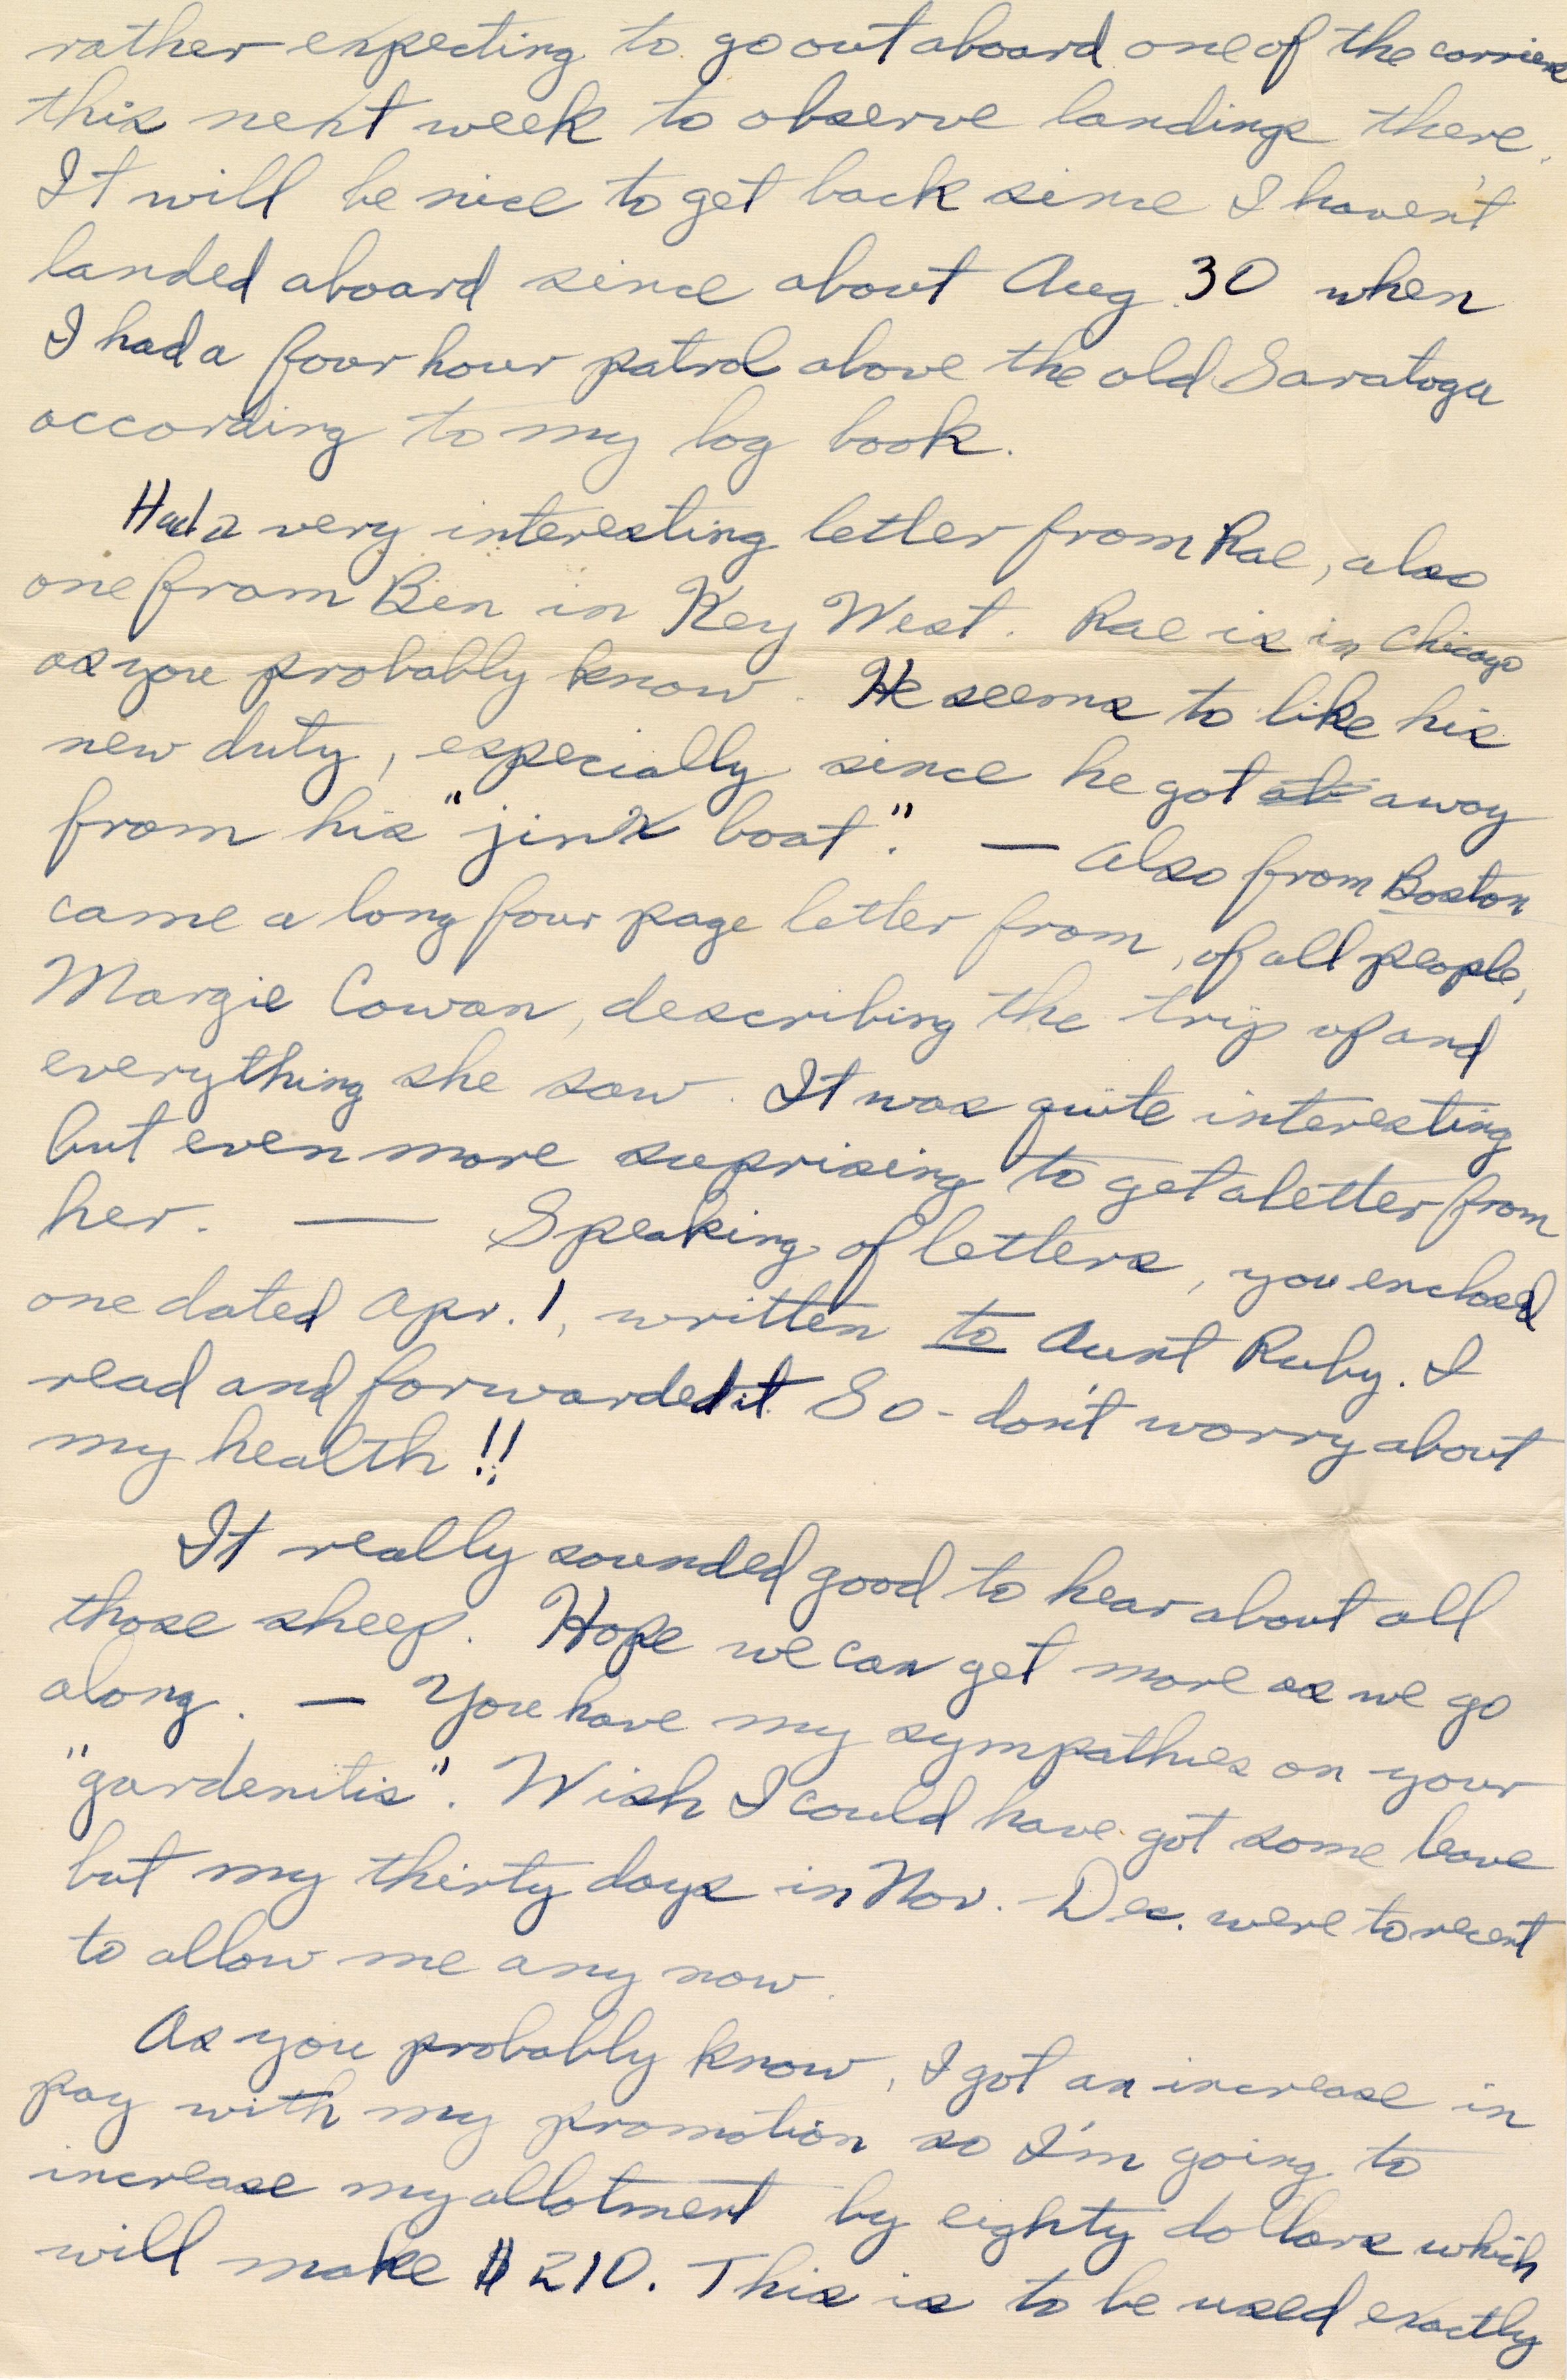 rather expecting to go out aboard one of the carriers
this next week to observe landings there.
It will be nice to get back since I haven't
landed aboard since about Aug 30 when
I had a four hour patrol above the old Saratoga
according to my log book.
Had a very interesting letter from Rae, also
one from Ben in Key West. Rae is in Chicago
as you probably know. He seems to like his
new duty, especially since he got away
from his "jinx boat". — Also from Boston
came a long four page letter from, of all people,
Margie Cowan, describing the trip up and
everything she saw. It was quite interesting
but even more suprising to get a letter from
her. — Speaking of letters, you enclosed
one dated Apr. 1, written to Aunt Ruby. I
read and forwarded it. So - don't worry about
my health!!
It really sounded good to hear about all
those sheep. Hope we can get more as we go
along. — You have my sympathies on your
"gardenitis". Wish I could have got some leave
but my thirty days in Nov. - Dec. were to recent
to allow me any now.
As you probably know, I got an increase in
pay with my promotion so I'm going to
increase my allotment by eighty dollars which
will make $210. This is to be used exactly